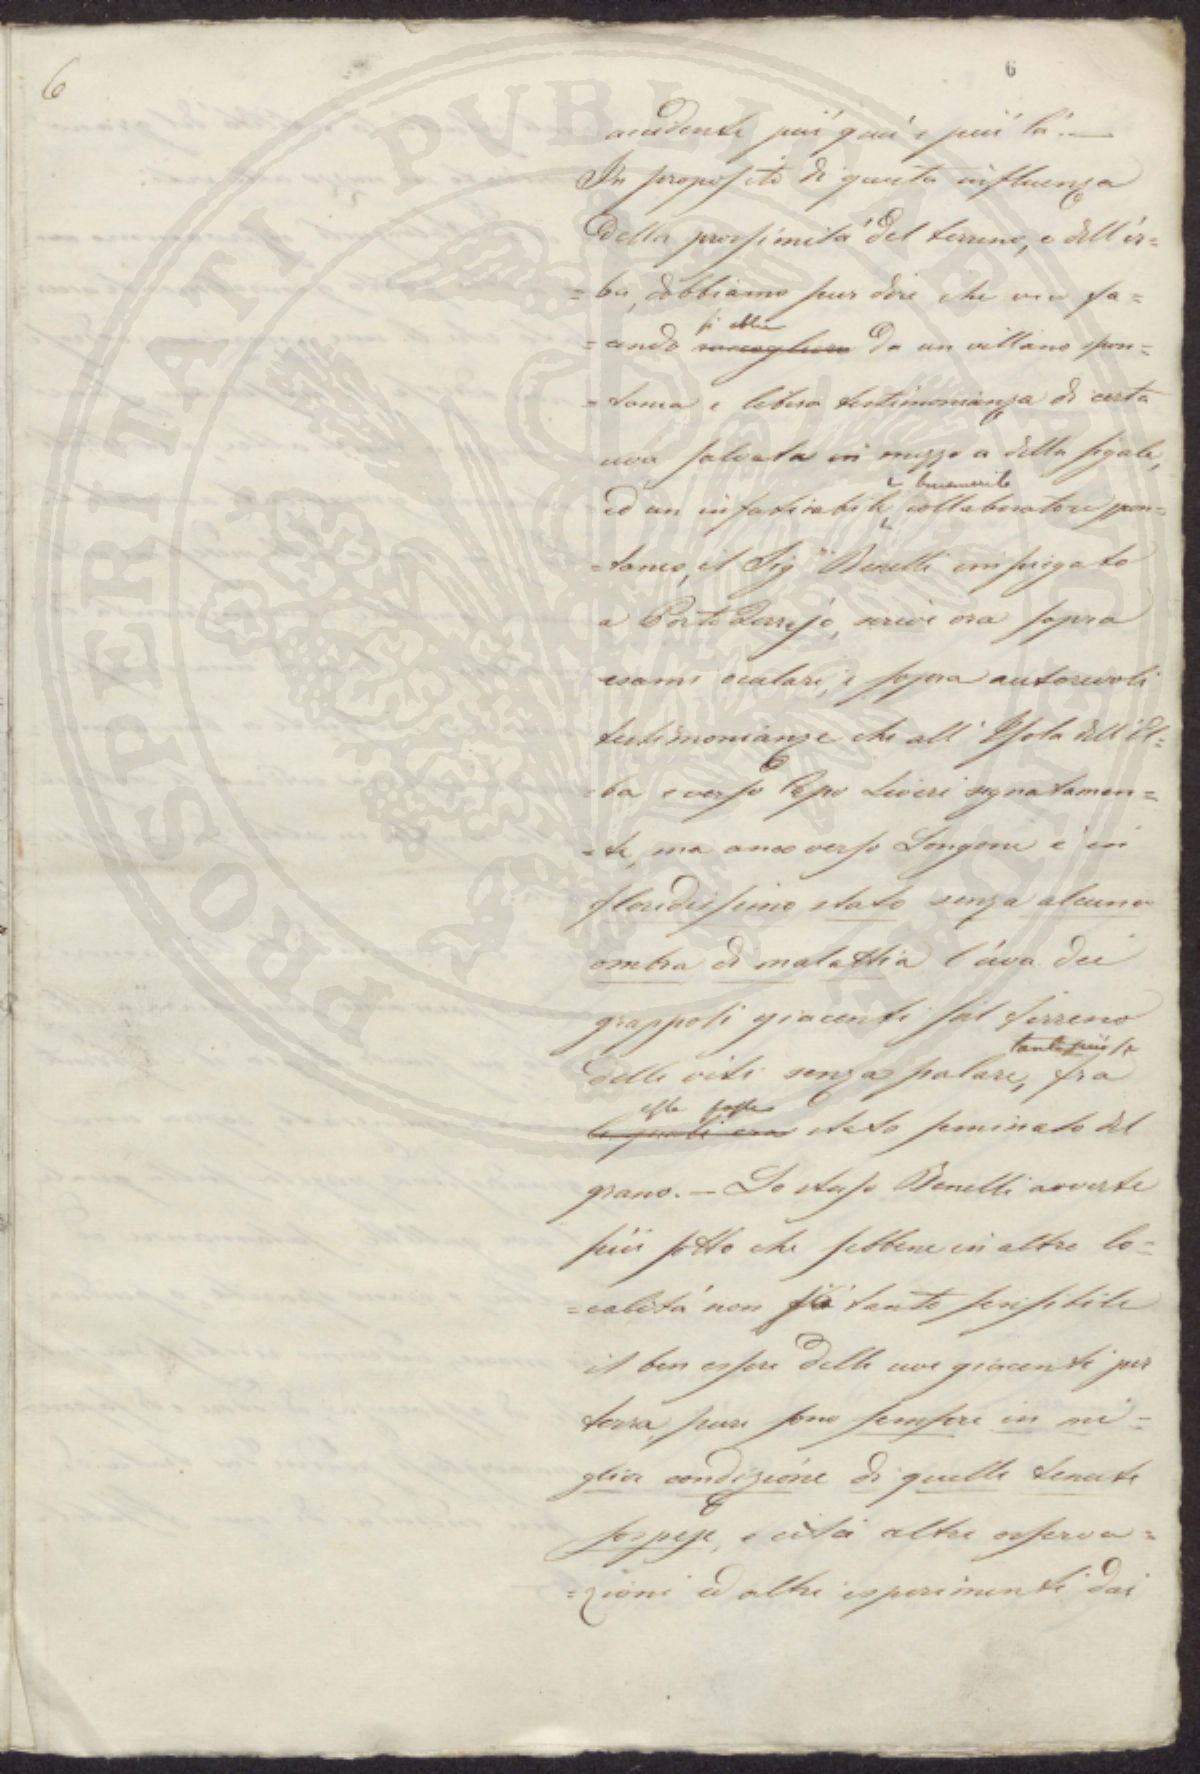 6
6
accidente più quà e più là. —
In proposito di questa influenza
della prossimità del terreno, e dell'er=
=ba, dobbiamo pur dire che
=cendo da un villano spon=
si ebbe
=tanea e libera testimonianza di certa
uva salvata in mezzo a della segale,
e benemerito
ed un infaticabile collaboratore spon=
=taneo, il Sigr Benelli impiegato
a Porto Ferrajo, scrive ora sopra
esami oculari, e sopra autorevoli
testimonianze che all'Isola dell'El=
=ba e verso Capo Liveri segnatamen=
=te, ma anco verso Longone è in
floridissimo stato senza alcuna
ombra di malattia l'uva dei
grappoli giacenti sul terreno
tanto più se
delle viti senza palare, fra
esse fosse
le quali era stato seminato del
grano. — Lo stesso Benelli avverte
più sotto che sebbene in altre lo=
=calità non sia tanto sensibile
il ben essere delle uve giacenti per
terra, pure sono sempre in mi=
glior condizióne di quelle tenute
sospese, e cita altre osserva=
=zioni ed altri esperimenti dai
PROSPERITATI PVBLICAE